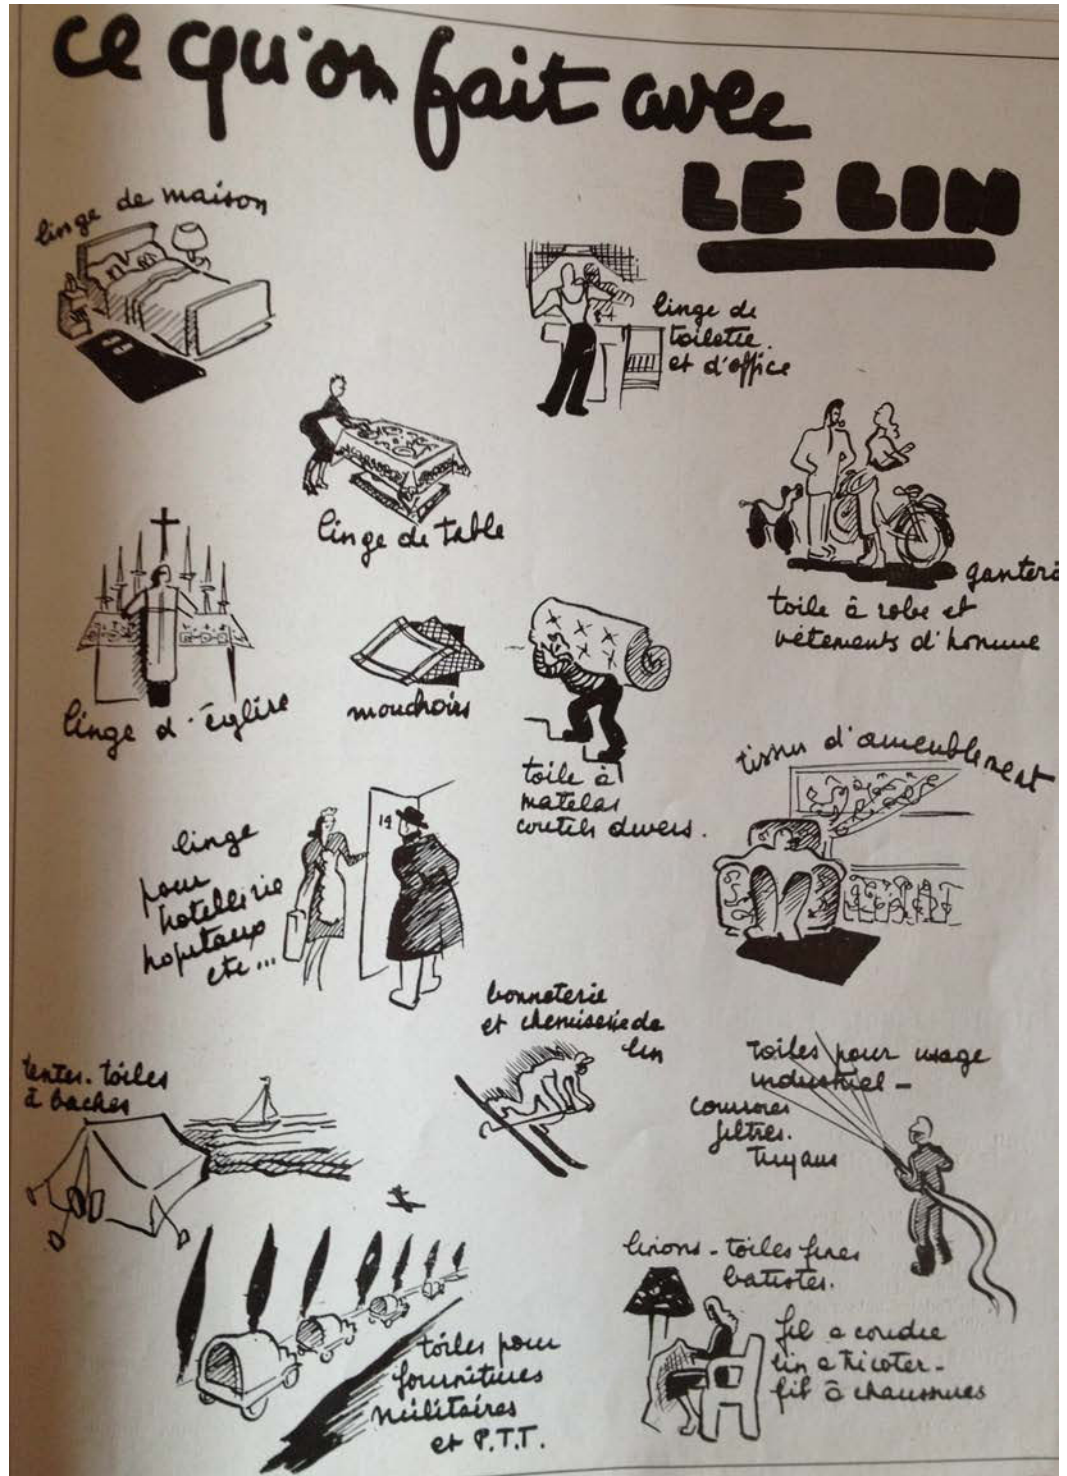 ce qu'on fait avec
LE LIN
linge de maison
linge de
toilette.
et d'office
linge de table
ganterie
toile à robe et
vêtements d'homme
linge d'église
mouchoirs
toile à
matelas
coutils divers.
tissus d'ameublement
linge
pour
hotellerie
hopitaux
etc...
19
bonneterie
et chemiserie de
lin
tentes-toiles
à baches
toiles pour usage
industriel -
courroies
filtres.
tuyaux
toiles pour
fournitures
militaires
et P.T.T.
linons - toiles fines
batistes.
fil a coudre
lin a tricoter -
fil à chaussures